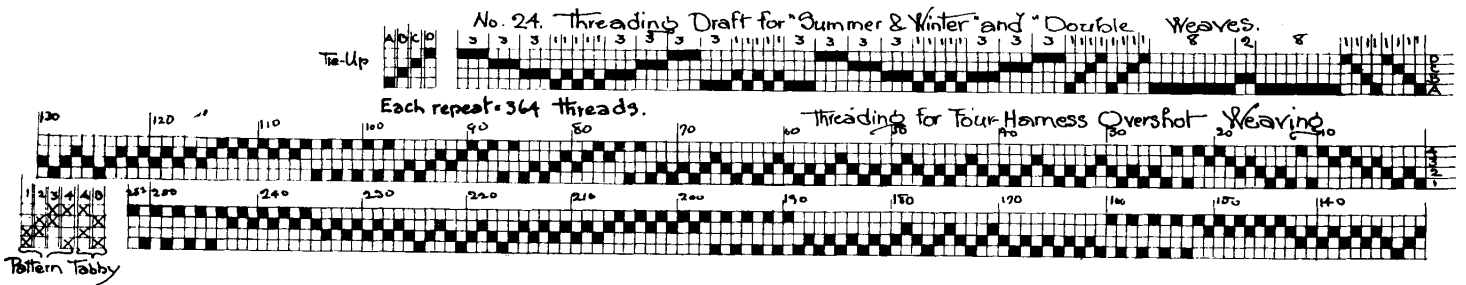 No. 24. Threading Draft for "Summer & Winter" and "Double Weaves.
A B C D
3 3 3 1 1 1 1 1 3 3 3 1 1 1 1 1 3 3 3 3 1 1 1 1 1 3 3 3 1 1 1 1 1 1 1 1 8 2 8 1 1 1 1 1 1 1 1
Tie-Up
D
C
B
A
Each repeat = 364 threads.
Threading for Four-Harness Overshot Weaving
130 120 110 100 90 80 70 60 50 40 30 20 10
4
3
2
1
1 2 3 4 A B
252 250 240 230 220 210 200 190 180 170 160 150 140
Pattern Tabby